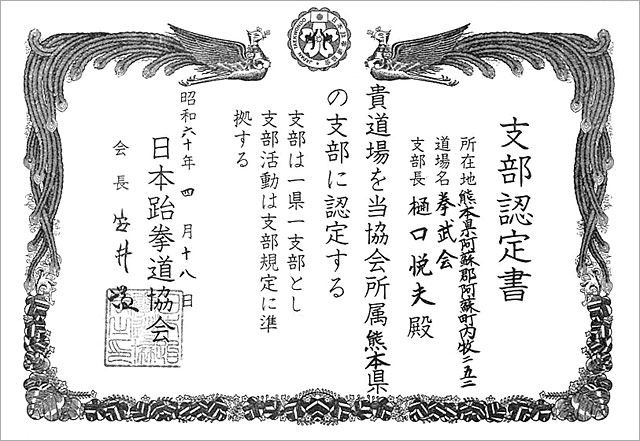 支部認定書
所在地 熊本県阿蘇郡阿蘇町内牧二五二
道場名 拳武会
支部長 樋口悦夫 殿
貴道場を当協会所属熊本県
の支部に認定する
支部は一県一支部とし
支部活動は支部規定に準
拠する
昭和六十年 四月十八日
日本跆拳道協会
会長